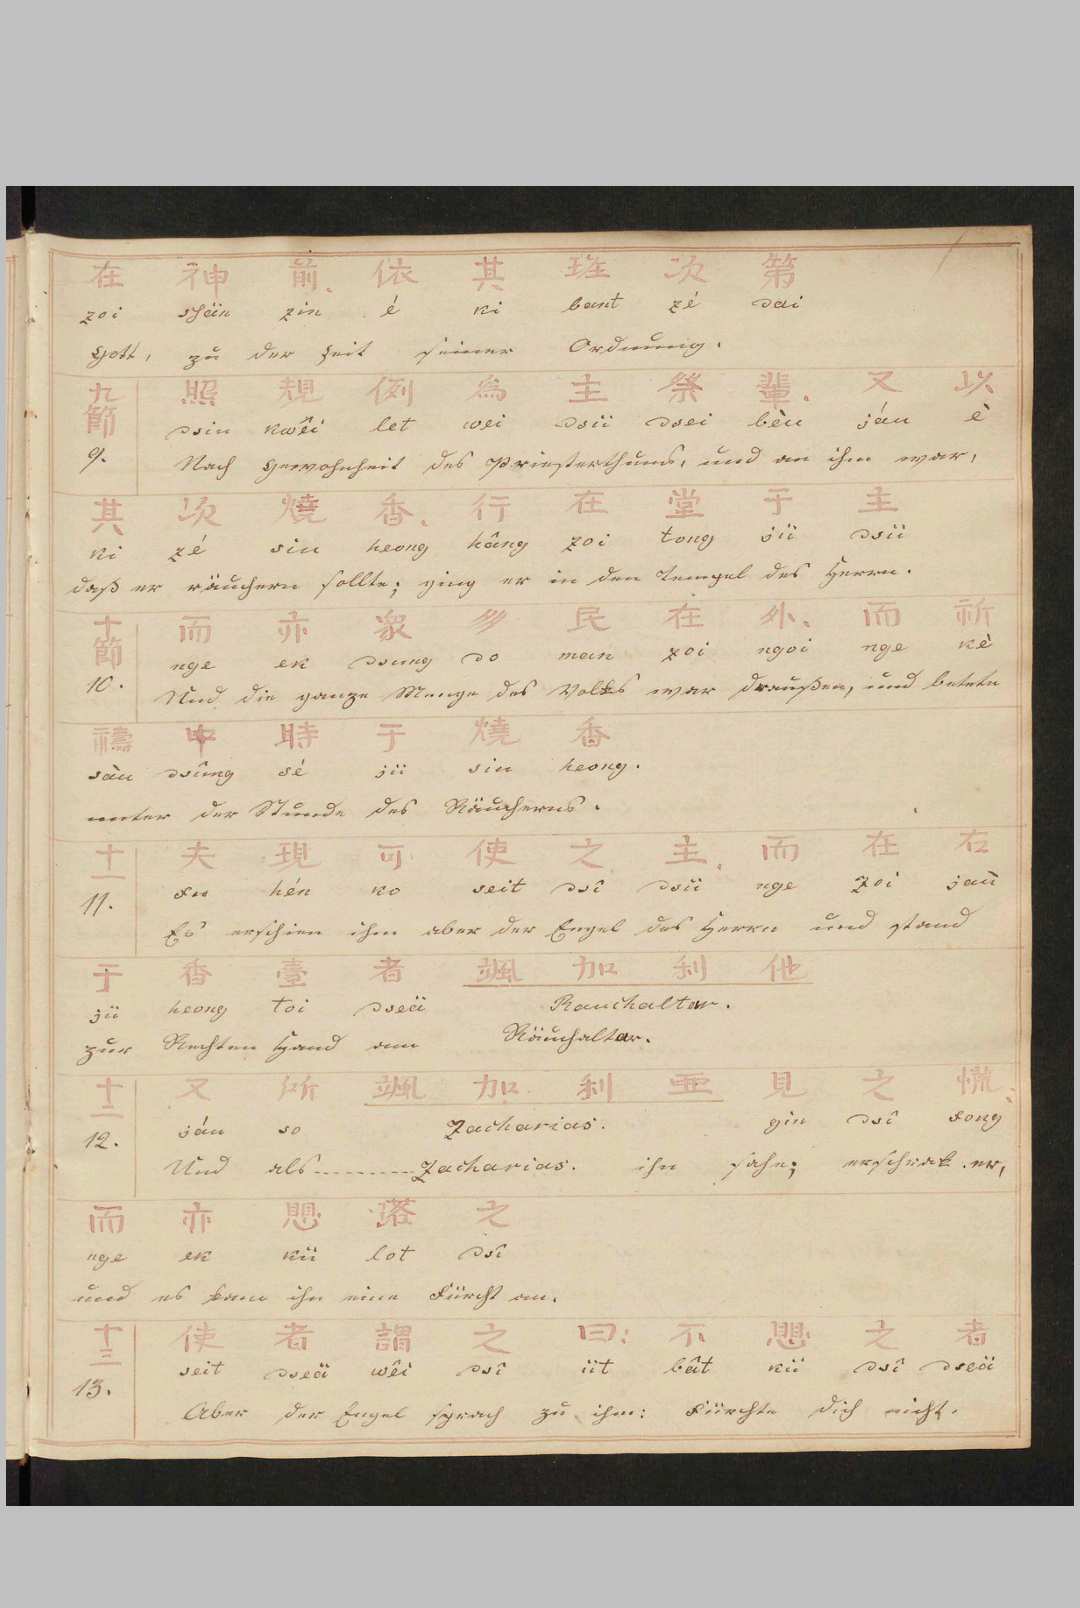 在 神 前、 依 其 班 次 第
zoi shän zin é ki bant zé dai
Gott, zu der Zeit seiner Ordnung.
九節 照 規 例 為 主 祭 輩、 又 以
9. dsin kwêi let wei dsü dsei bèu ján è
Nach Gewohnheit des Priesterthums, und an ihm war,
其 次 燒 香、 行 在 堂 于 主
ki zé siu heong hâng zoi tong jü dsü
daß er räuchern sollte; ging er in den Tempel des Herrn.
十節 而 亦 衆 多 民 在 外、 而 祈
10. nge ek dsung do man zoi ngoi nge kè
Und die ganze Menge des Volkes war draußen, und betete
禱 中 時 于 燒 香
sàu dsûng sé jü siu heong.
unter der Stunde des Räucherns.
十一 夫 現 可 使 之 主、 而 在 右
11. fu hén ko seit dsî dsü nge zoi jaù
Es erschien ihm aber der Engel des Herrn und stand
于 香 臺 者 颯 加 利 他
jü heong toi dseä Rauchaltar.
zur Rechten Hand am Räuchaltar.
十二 又 所 颯 加 利 亜 見 之 慌、
12. ján so Zacharias. gin dsî fong
Und als Zacharias. ihn sahe; erschrak er,
而 亦 懼 嗒 之
nge ek kü lot dsî
und es kam ihn eine Fürcht an.
十三 使 者 謂 之 曰: 不 懼 之 者
13. seit dseä wêi dsî üt bât kü dsî dseä
Aber der Engel sprach zu ihm: Fürchte dich nicht.